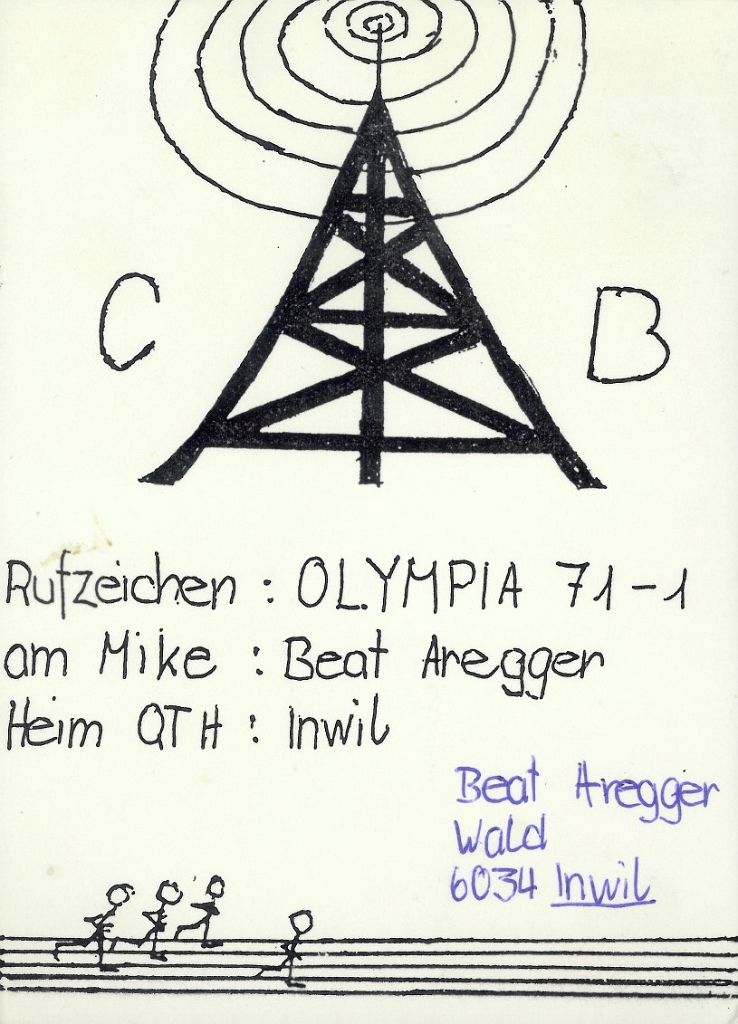 C B
Rufzeichen : OLYMPIA 71-1
am Mike : Beat Aregger
Heim QTH : Inwil
Beat Aregger
Wald
6034 Inwil